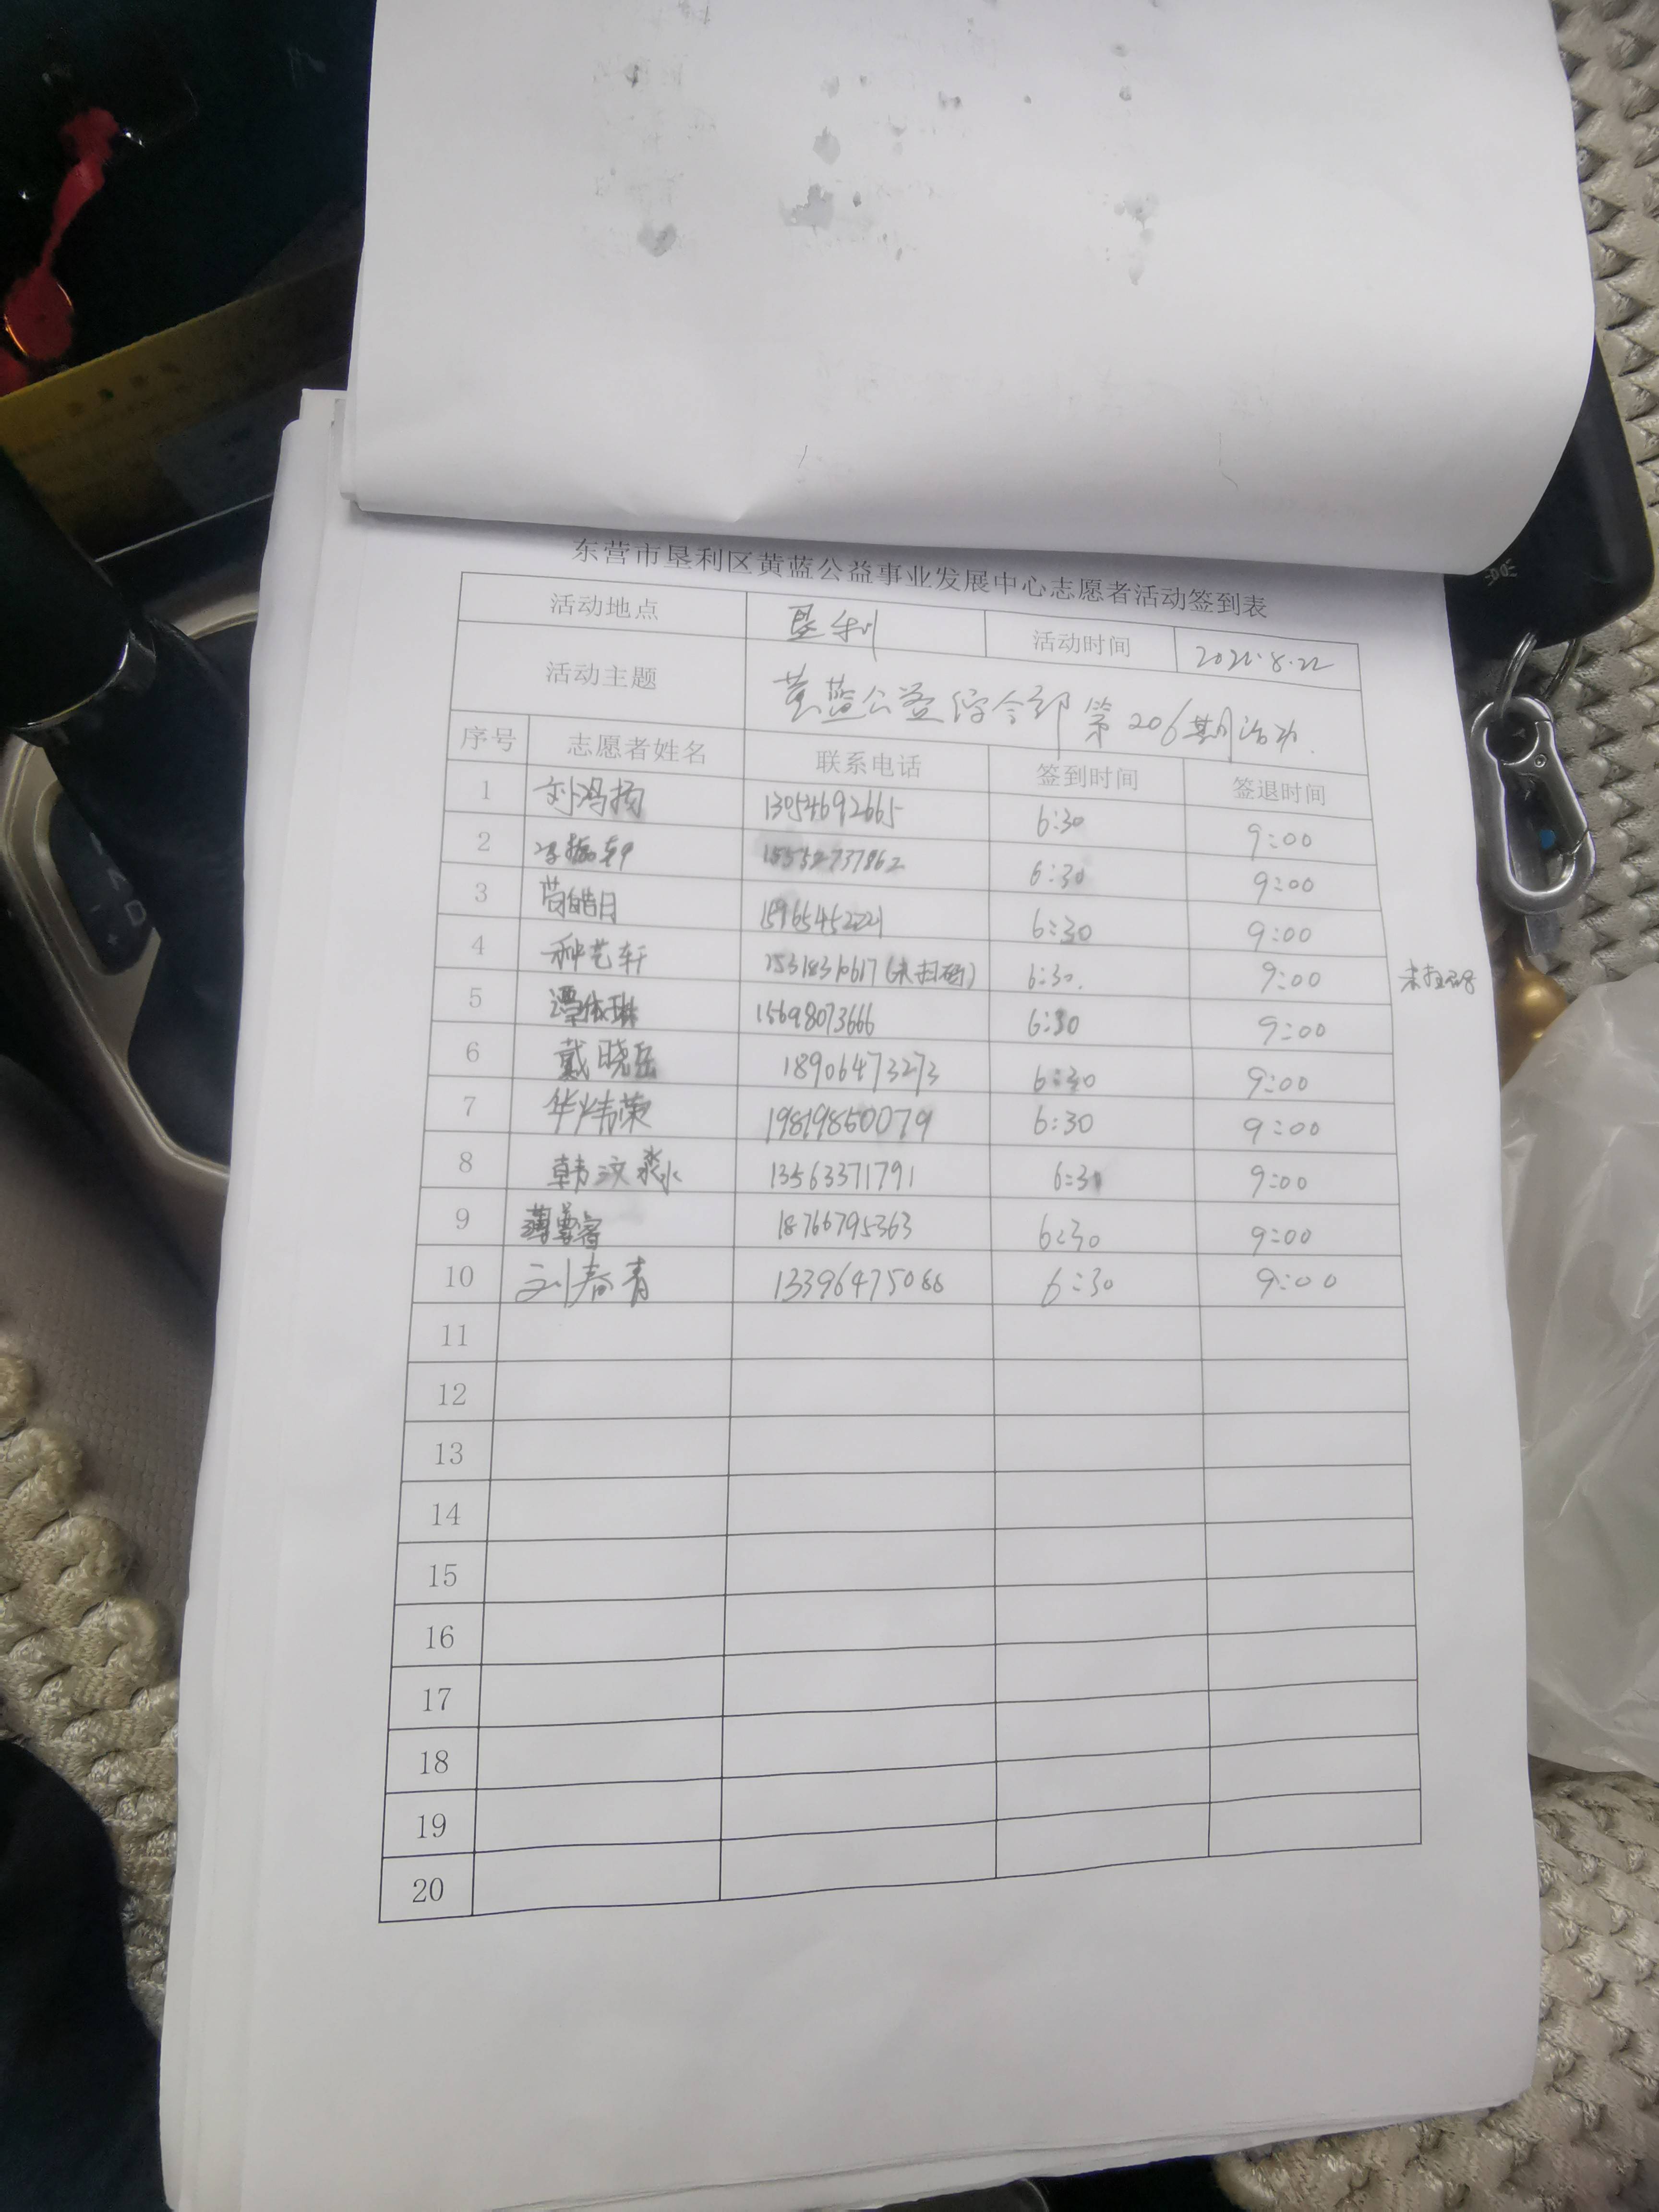 东营市垦利区黄蓝公益事业发展中心志愿者活动签到表
活动地点 垦利 活动时间 2022.8.22
活动主题 黄蓝公益综合部第206期活动.
序号 志愿者姓名 联系电话 签到时间 签退时间
1 刘鸿扬 13054692665 6:30 9:00
2 15552737862 6:30 9:00
3 苟皓月 15965452221 6:30 9:00
4 种艺轩 15318310617(未扫码) 6:30. 9:00 未扫码
5 谭依琳 15698073666 6:30 9:00
6 戴晓岳 18906473273 6:30 9:00
7 华炜荣 19819860079 6:30 9:00
8 韩汶淼 13563371791 6:30 9:00
9 18766795363 6:30 9:00
10 刘春青 13396475088 6:30 9:00
11
12
13
14
15
16
17
18
19
20